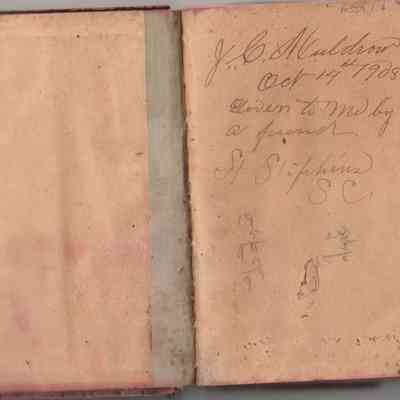 J. C. Muldrow
Oct 14th 1908
Given to me by
a friend
St Stephens
S C.